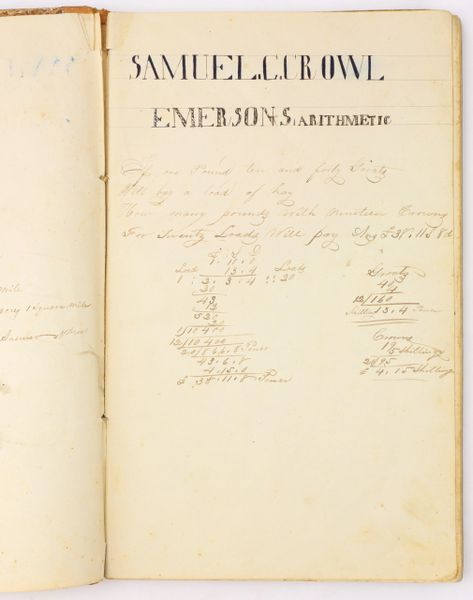 SAMUEL.C.CROWL
EMERSONS ARITHMETIC
If one Pound ten and forty Groats
Will buy a load of hay
How many pounds with nineteen Crowns
For Twenty Loads Will pay Ans £38,,11S 8d
£ S D
1.10.0
13.4
Lod Lods
1 : 2.3.4 :: 20
20
43
12
520
20
1)10400
12)10400
20)866.8 Pence
43.6.8
4.15.0
£ 38.11.8 Pence
Groats
40
4
12)160
Shillin 13.4 Pence
Crowns
19
5 Shillings
20)95
£ 4.15 Shillings
Mile
Square Mile